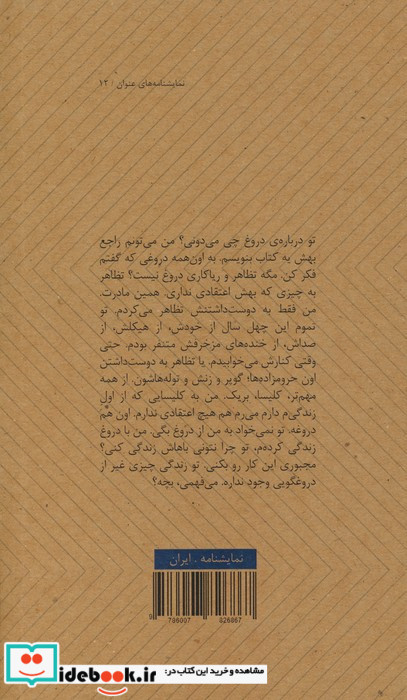 نمایشنامه‌های عنوان / ۱۲
تو درباره‌ی دروغ چی می‌دونی؟ من می‌تونم راجع
بهش یه کتاب بنویسم. به اون‌همه دروغی که گفتم
فکر کن. مگه تظاهر و ریاکاری دروغ نیست؟ تظاهر
به چیزی که بهش اعتقادی نداری. همین مادرت.
من فقط به دوست‌داشتنش تظاهر می‌کردم. تو
تموم این چهل سال از خودش، از هیکلش، از
صداش، از خنده‌های مزخرفش متنفر بودم. حتی
وقتی کنارش می‌خوابیدم. یا تظاهر به دوست‌داشتن
اون حرومزاده‌ها؛ گوپر و زنش و توله‌هاشون. از همه
مهم‌تر، کلیسا، بریک. من به کلیسایی که از اول
زندگی‌م دارم می‌رم هم هیچ اعتقادی ندارم. اون هم
دروغه. تو نمی‌خواد به من از دروغ بگی. من با دروغ
زندگی کرده‌م، تو چرا نتونی باهاش زندگی کنی؟
مجبوری این کار رو بکنی. تو زندگی چیزی غیر از
دروغگویی وجود نداره. می‌فهمی، بچه؟
نمایشنامه . ایران
9 786007 826867
idebook.ir
مشاهده و خرید این کتاب در: